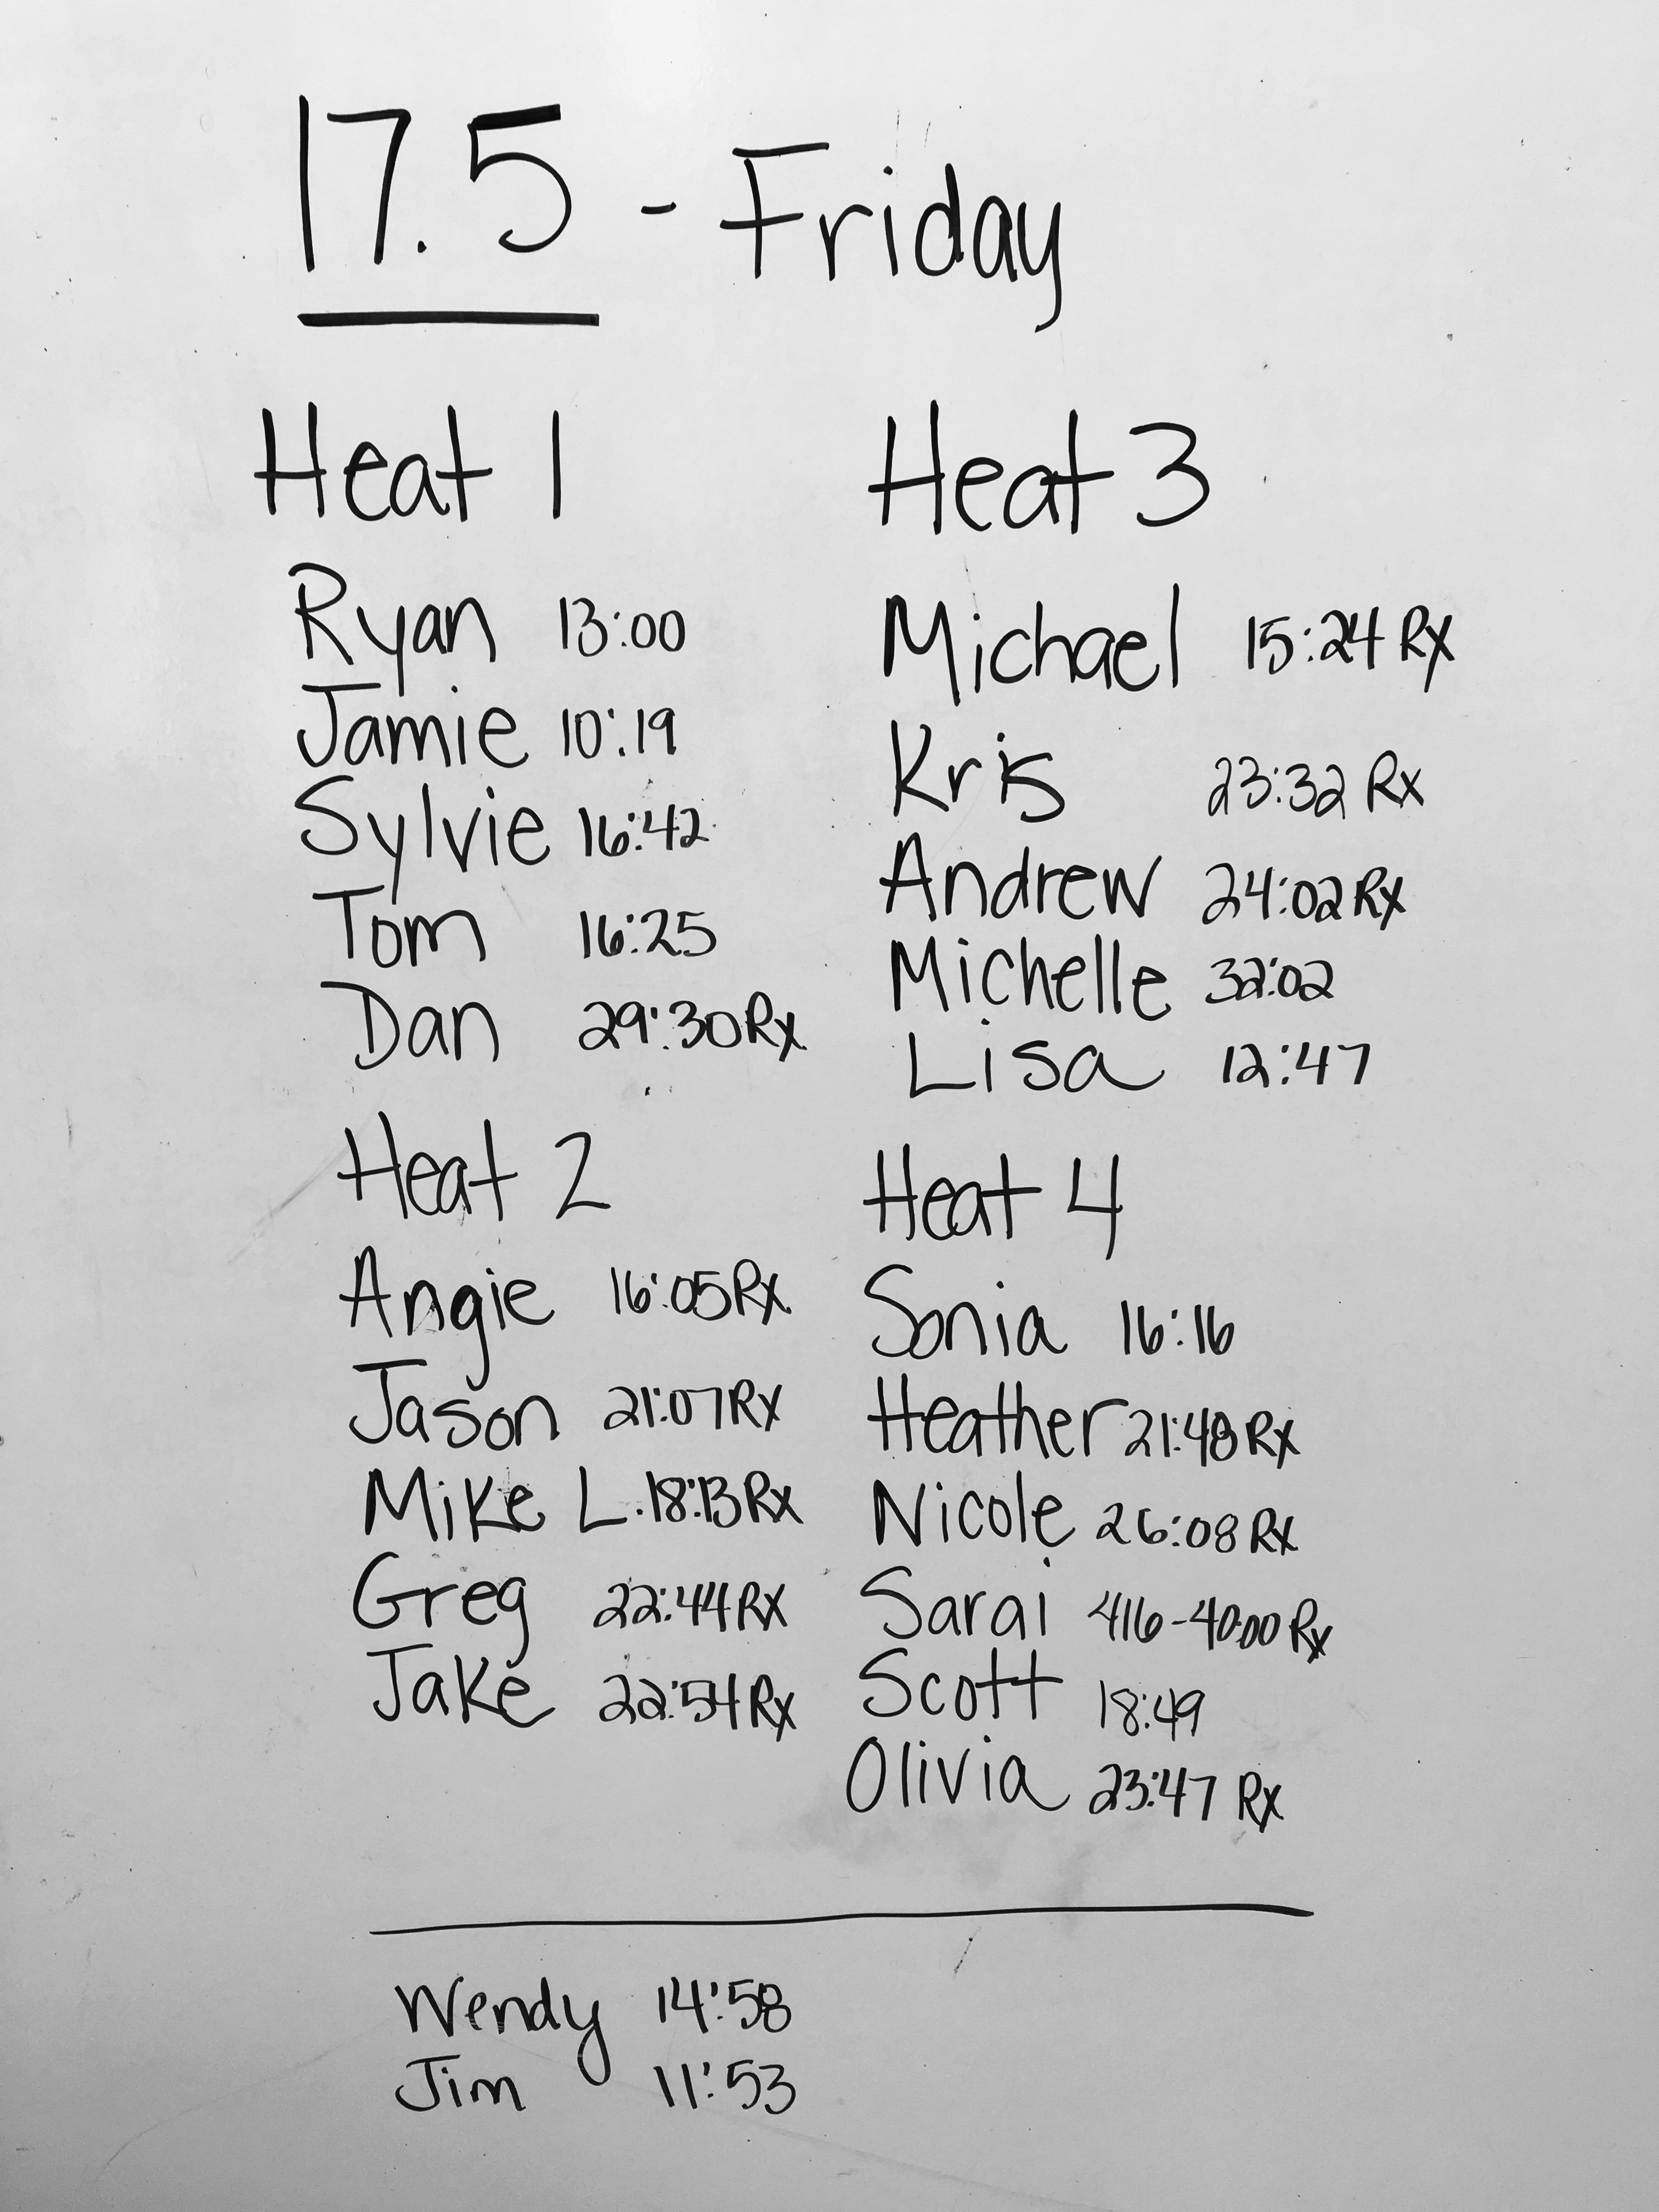 17.5 - Friday
Heat 1
Ryan 13:00
Jamie 10:19
Sylvie 16:42
Tom 16:25
Dan 29:30 Rx
Heat 2
Angie 16:05 Rx
Jason 21:07 Rx
Mike L. 18:13 Rx
Greg 22:44 Rx
Jake 22:54 Rx
Heat 3
Michael 15:24 Rx
Kris 23:32 Rx
Andrew 24:02 Rx
Michelle 32:02
Lisa 12:47
Heat 4
Sonia 16:16
Heather 21:48 Rx
Nicole 26:08 Rx
Sarai 416-40:00 Rx
Scott 18:49
Olivia 23:47 Rx
Wendy 14:58
Jim 11:53